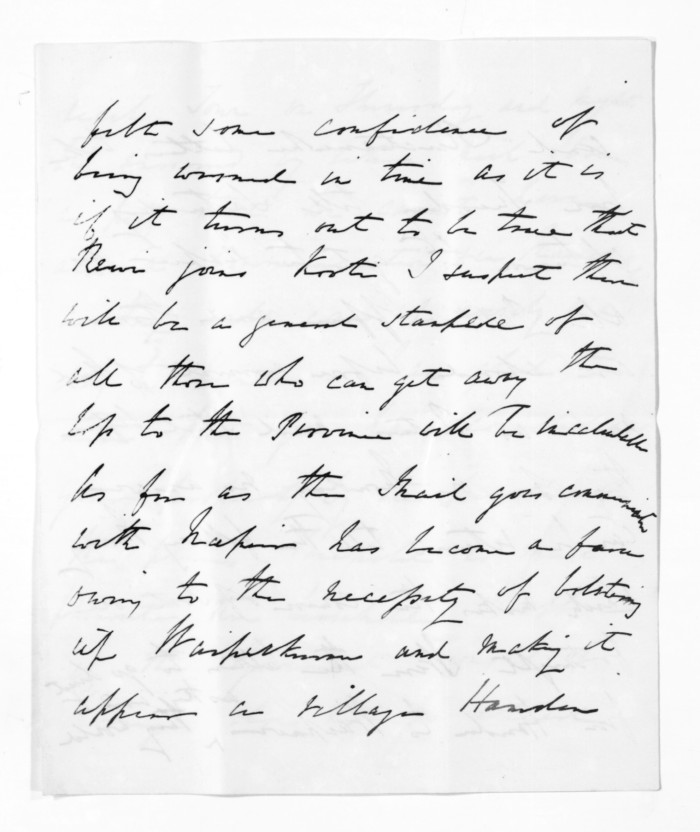 felt some confidence of
being warned in time as it is
if it turns out to be true that
Rewi joins Kooti I suspect there
will be a general stampede of
all those who can get away the
loss to the Province will be incalculable
As far as the Mail goes communication
with Napier has become a farce
owing to the necessity of bolstering
up Waipukurau and making it
appear a village Hampden